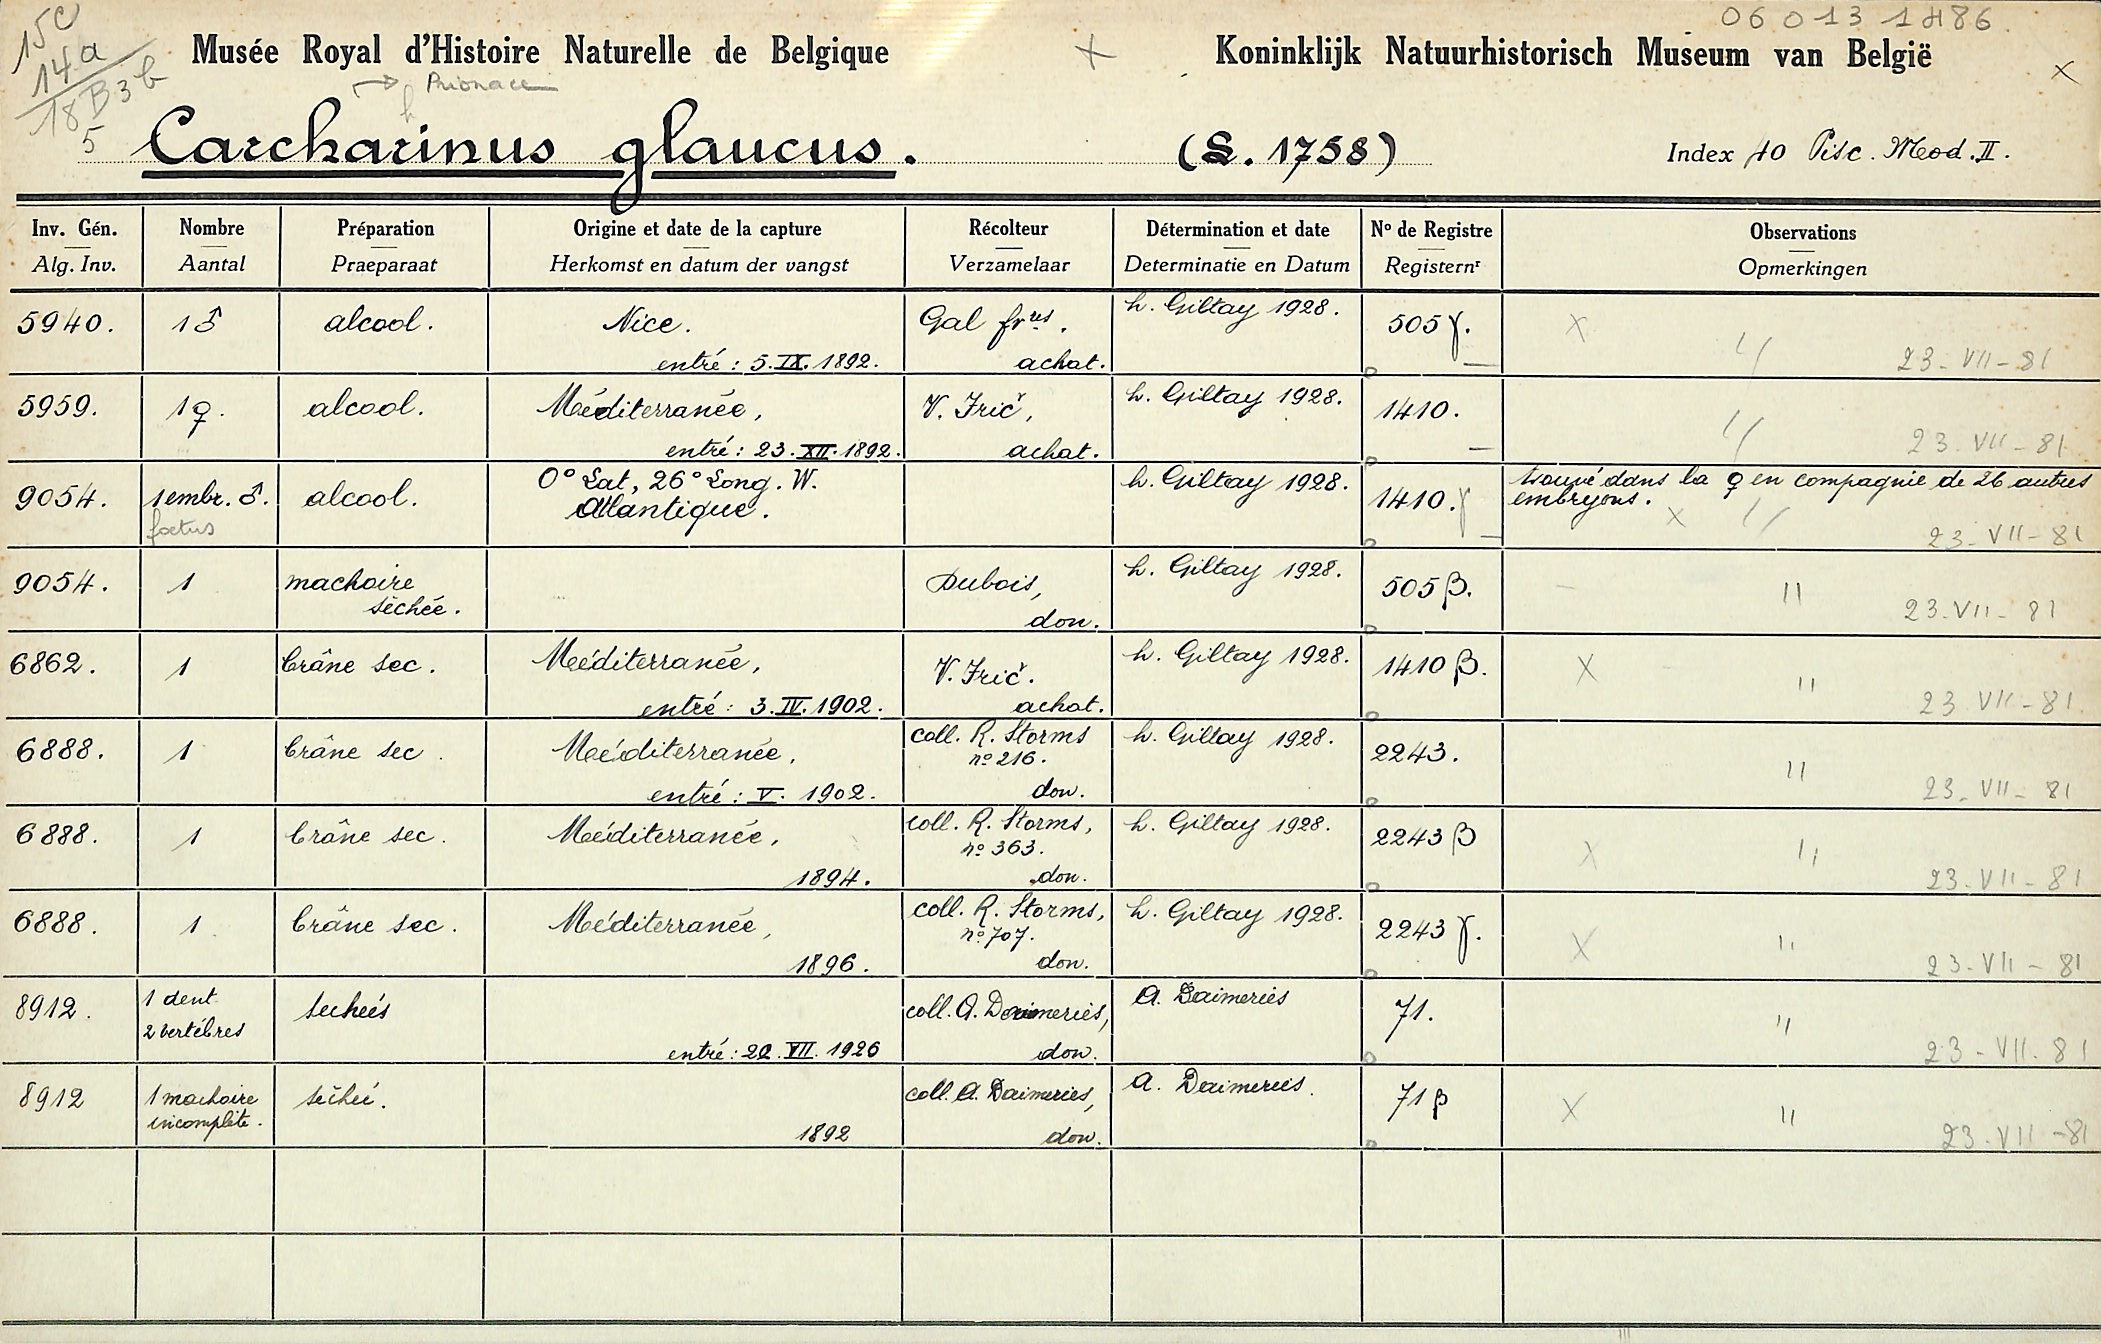 15c
14a
18B3b
5
06 013 1486
Musée Royal d'Histoire Naturelle de Belgique
Koninklijk Natuurhistorisch Museum van België
→ Prionace
h
Carcharinus glaucus. (L. 1758)
Index 40 Pisc. Mod. II.
Inv. Gén. Nombre Préparation Origine et date de la capture Récolteur Détermination et date Nº de Registre Observations
Alg. Inv. Aantal Praeparaat Herkomst en datum der vangst Verzamelaar Determinatie en Datum Registernʳ Opmerkingen
5940. 1♂ alcool. Nice. Gal frᵉˢ. L. Giltay 1928. 505γ. X
entré : 5.IX.1892. achat. 23-VII-81
5959. 1♀. alcool. Méditerranée, V. Frič, L. Giltay 1928. 1410.
entré : 23.XII.1892. achat. 23.VII-81
9054. 1 embr. ♂. alcool. 0° Lat, 26° Long. W. L. Giltay 1928. 1410.γ trouvé dans la ♀ en compagnie de 26 autres
foetus Atlantique. embryons. X 23-VII-81
9054. 1 machoire Dubois, L. Giltay 1928. 505β. "
séchée. don. 23.VII-81
6862. 1 Crâne sec. Méditerranée, V. Frič. L. Giltay 1928. 1410β. X "
entré : 3.IV.1902. achat. 23 VII-81
6888. 1 Crâne sec. Méditerranée, coll. R. Storms L. Giltay 1928. 2243. "
nº 216.
entré : V. 1902. don. 23-VII-81
6888. 1 Crâne sec. Méditerranée, coll. R. Storms, L. Giltay 1928. 2243β X "
nº 363.
1894. don. 23-VII-81
6888. 1 Crâne sec. Méditerranée, coll. R. Storms, L. Giltay 1928. 2243γ. X "
nº 707.
1896. don. 23-VII-81
8912. 1 dent séchées coll. A. Daimeries, A. Daimeries 71. "
2 vertèbres
entré : 20.VII.1926 don. 23-VII.81
8912 1 machoire séchée. coll. A. Daimeries, A. Daimeries. 71β X "
incomplète.
1892 don. 23-VII-81